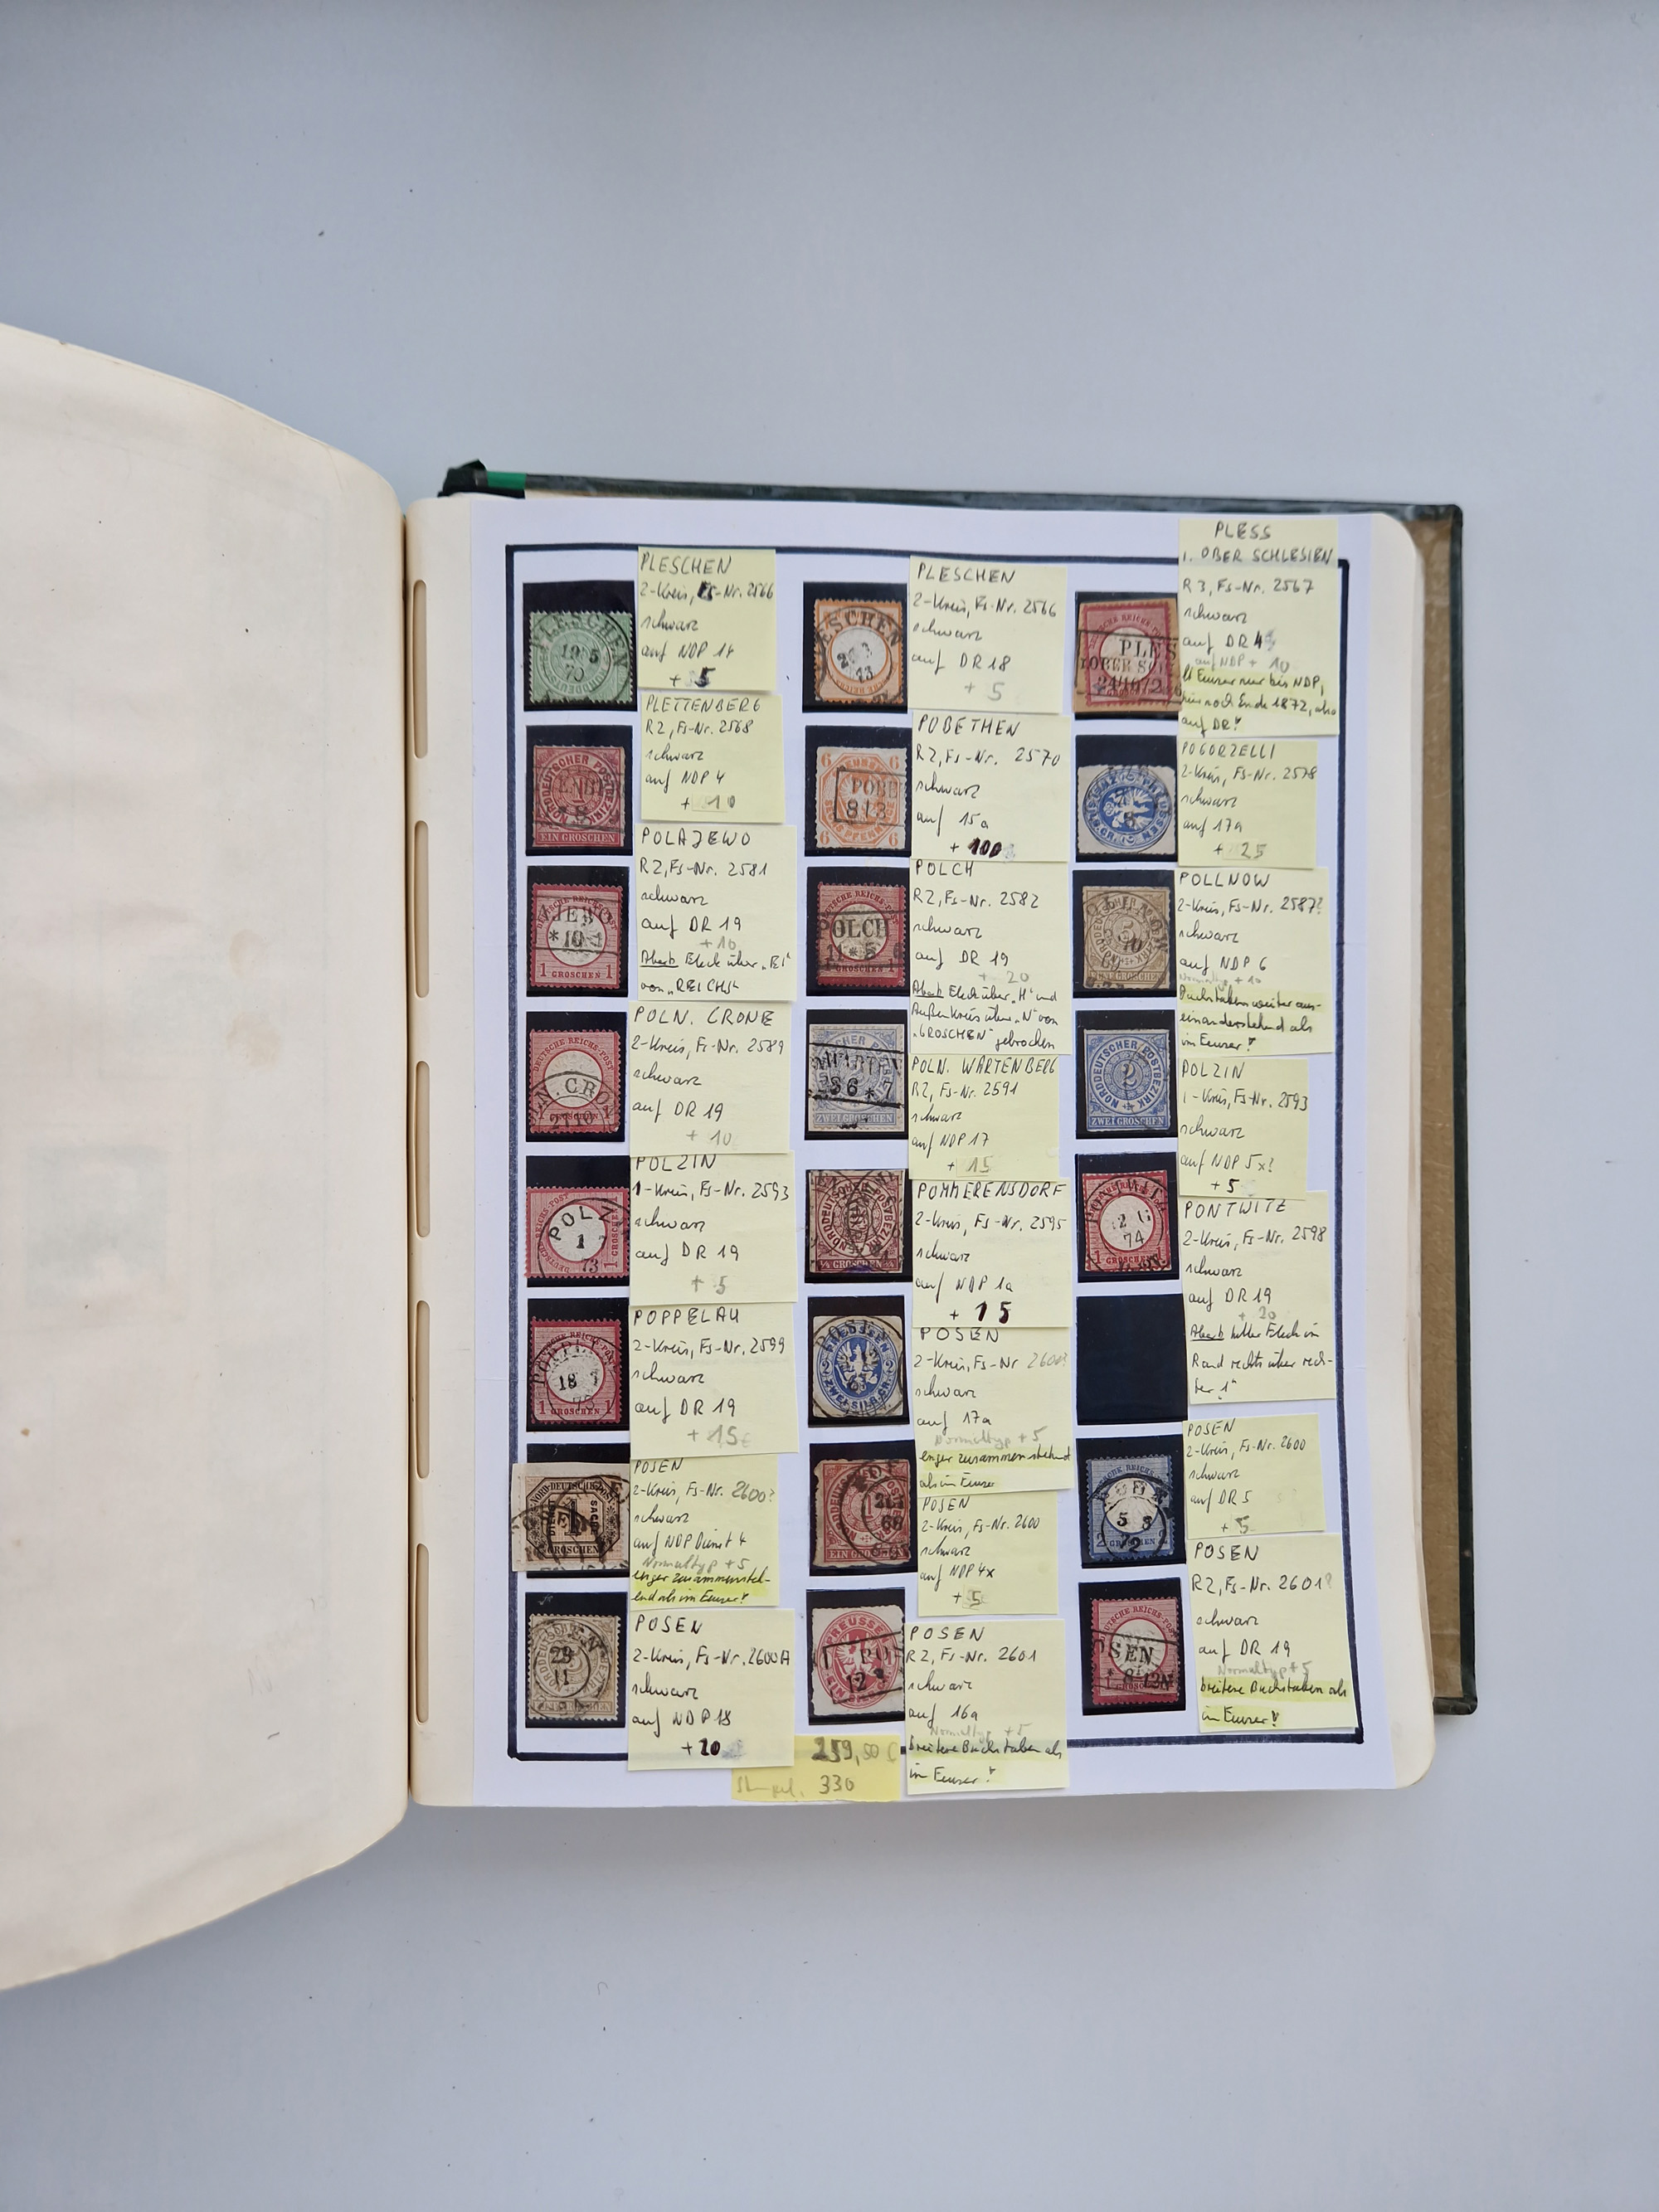 PLESCHEN
2-Kreis, Fs-Nr. 2566
schwarz
auf NDP 14
+ 5
PLESCHEN
2-Kreis, Fs-Nr. 2566
schwarz
auf DR 18
+ 5
PLESS
i. OBER SCHLESIEN
R 3, Fs-Nr. 2567
schwarz
auf DR 4
auf NDP + 10
lt Feuser nur bis NDP,
hier noch Ende 1872, also
auf DR!
PLETTENBERG
R2, Fs-Nr. 2568
schwarz
auf NDP 4
+ 10
POBETHEN
R2, Fs-Nr. 2570
schwarz
auf 15a
+ 100
POGORZELLI
2-Kreis, Fs-Nr. 2578
schwarz
auf 17a
+ 25
POLAJEWO
R2, Fs-Nr. 2581
schwarz
auf DR 19
+ 10
Abart Fleck über "EI"
von "REICHS"
POLCH
R2, Fs-Nr. 2582
schwarz
auf DR 19
+ 20
Abart Fleck über "H" und
Außenkreis über "N" von
"GROSCHEN" gebrochen
POLLNOW
2-Kreis, Fs-Nr. 2587?
schwarz
auf NDP 6
Normaltyp + 10
Buchstaben weiter aus-
einanderstehend als
im Feuser!
POLN. CRONE
2-Kreis, Fs-Nr. 2589
schwarz
auf DR 19
+ 10
POLN. WARTENBERG
R2, Fs-Nr. 2591
schwarz
auf NDP 17
+ 15
POLZIN
1-Kreis, Fs-Nr. 2593
schwarz
auf NDP 5x?
+ 5
POLZIN
1-Kreis, Fs-Nr. 2593
schwarz
auf DR 19
+ 5
POMMERENSDORF
2-Kreis, Fs-Nr. 2595
schwarz
auf NDP 1a
+ 15
PONTWITZ
2-Kreis, Fs-Nr. 2598
schwarz
auf DR 19
+ 20
Abart heller Fleck im
Rand rechts über rech-
ter 1"
POPPELAU
2-Kreis, Fs-Nr. 2599
schwarz
auf DR 19
+ 15
POSEN
2-Kreis, Fs-Nr 2600?
schwarz
auf 17a
Normaltyp + 5
enger zusammenstehend
als im Feuser
POSEN
2-Kreis, Fs-Nr. 2600
schwarz
auf DR 5
+ 5
POSEN
2-Kreis, Fs-Nr. 2600?
schwarz
auf NDP Dienst 4
Normaltyp + 5
enger zusammenste-
hend als im Feuser!
POSEN
2-Kreis, Fs-Nr. 2600
schwarz
auf NDP 4x
+ 5
POSEN
R2, Fs-Nr. 2601?
schwarz
auf DR 19
Normaltyp + 5
breitere Buchstaben als
im Feuser!
POSEN
2-Kreis, Fs-Nr. 2600A
schwarz
auf NDP 18
+ 20
POSEN
R2, Fs-Nr. 2601
schwarz
auf 16a
Normaltyp + 5
breitere Buchstaben als
im Feuser!
259,50 €
330
LESCHEN
19 5
70
ESCHEN
PLES
24/10 72
EIN GROSCHEN
POBE
8 13
JEWO
*10-1
1 GROSCHEN 1
OLCH
N. CRO
86 * 7
ZWEI GROSCHEN
NORDDEUTSCHER POSTBEZIRK
2
ZWEI GROSCHEN
POLZ
1 7
73
74
18 7
1 GROSCHEN 1
NORD-DEUTSCHE POST
GROSCHEN
EIN GROSCHEN
5 8
72
29
11
POS
12
OSEN
8-12N